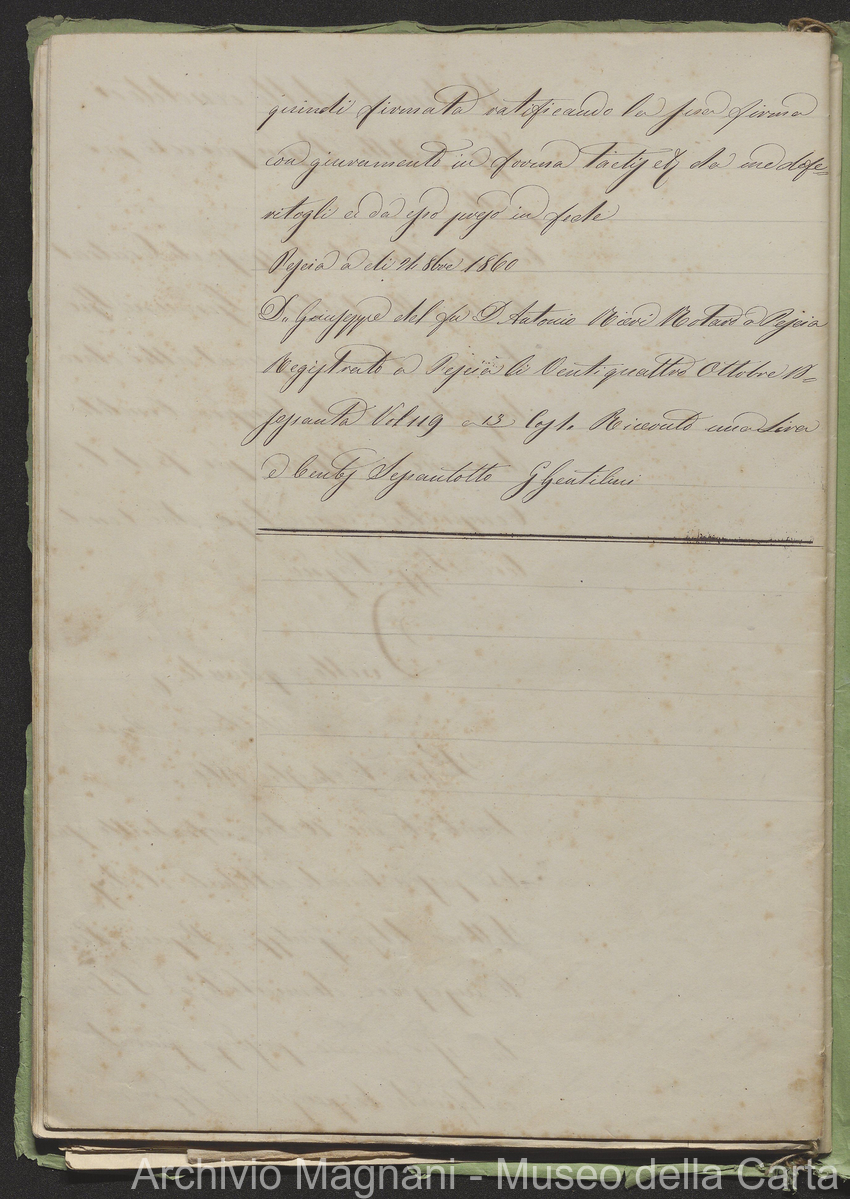 quindi firmata ratificando la sua firma
con giuramento in forma Tactis etc da me defe=
ritogli e da esso preso in fede
Pescia a di 24 8bre 1860
D. Giuseppe del fu D. Antonio Notaro a Pescia
Registrato a Pescia li Ventiquattro Ottobre
sessanta Vol 119 a 13 Cass. Ricevuto una Lira
e Cent Sessantotto G Gentilini
Archivio Magnani - Museo della Carta